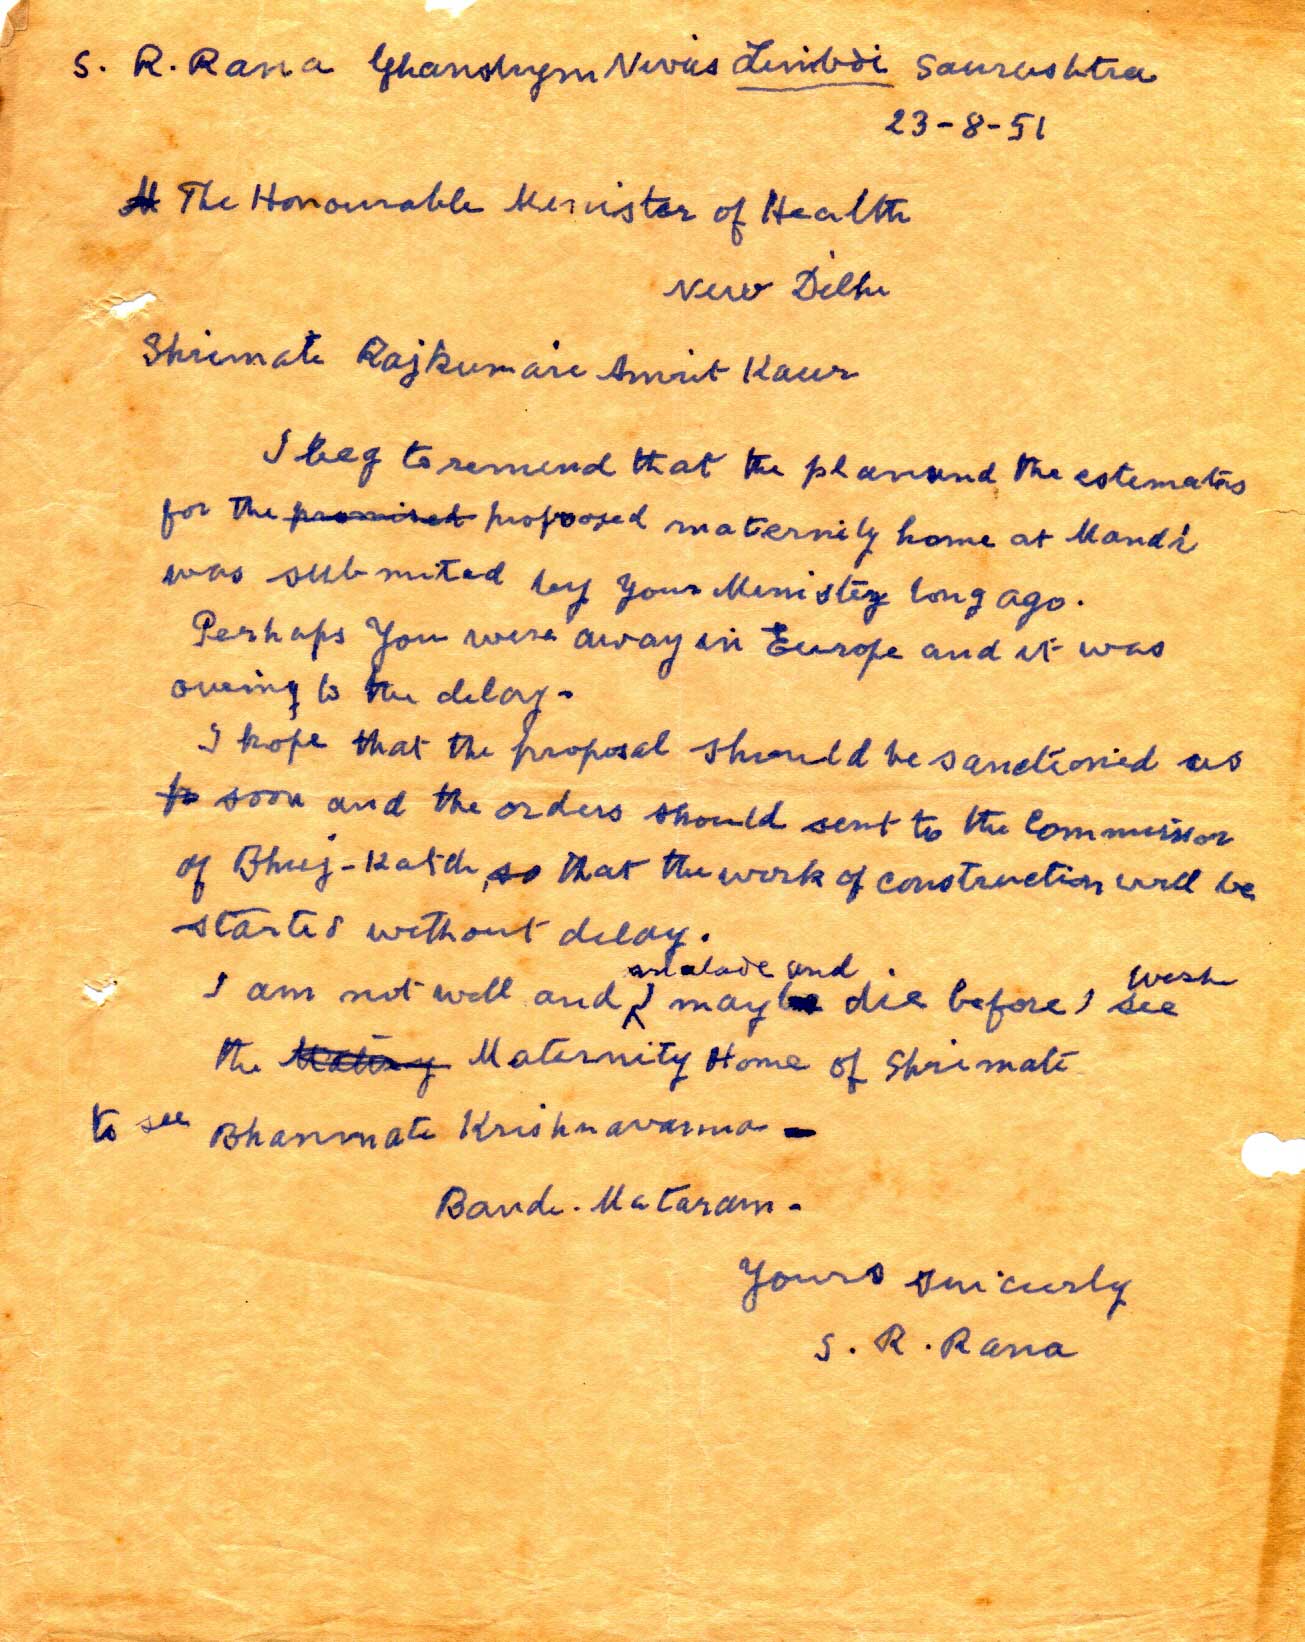 S. R. Rana Ghanshyam Nivas Limbdi Saurashtra
23-8-51
The Honourable Minister of Health
New Delhi
Shrimati Rajkumari Amrit Kaur
I beg to remind that the plan and the estemates
for the promised proposed maternity home at Mandvi
was submited by Your Ministry long ago.
Perhaps You were away in Europe and it was
oweing to the delay.
I hope that the proposal should be sanctioned as
to soon and the orders should sent to the Commissior
of Bhuj-Katch, so that the work of construction will be
started without delay.
malade and wish
I am not well and I may be die before I see
the Maternity Home of Shrimati
to see Bhanmati Krishnavarma -
Bande. Mataram.
Yours sincerly
S. R. Rana